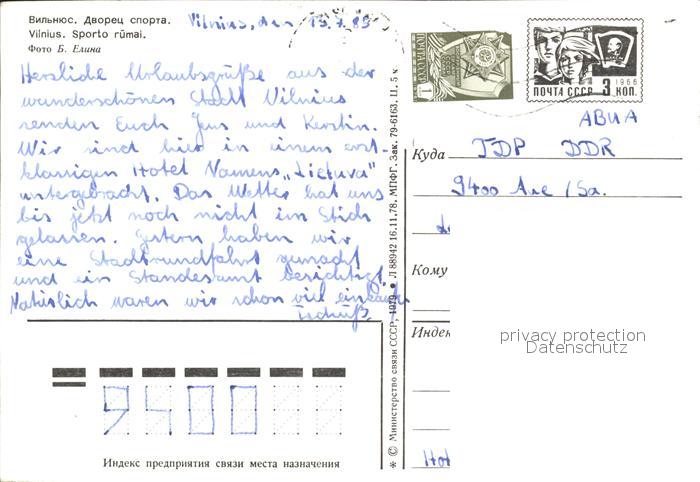 Вильнюс. Дворец спорта.
Vilnius. Sporto rūmai.
Фото Б. Елина
Vilnius, den 13.7.83
Herzliche Urlaubsgrüße aus der
wunderschönen Stadt Vilnius
senden Euch Jens und Kerstin.
Wir sind hier in einem erst-
klassigen Hotel Namens „Lietuva"
untergebracht. Das Wetter hat uns
bis jetzt noch nicht im Stich
gelassen. Gestern haben wir
eine Stadtrundfahrt gemacht
und ein Standesamt besichtigt.
Natürlich waren wir schon viel einkaufen
Tschüß.
1966
ПОЧТА СССР 3 КОП.
АВИА
Куда ГДР DDR
9400 Aue / Sa.
Кому
Индек
Hot
privacy protection
Datenschutz
9400
Индекс предприятия связи места назначения
* © Министерство связи СССР, 1979 ● Л 88942 16.11.78. МПФГ. Зак. 79-6163, Ц. 5 к